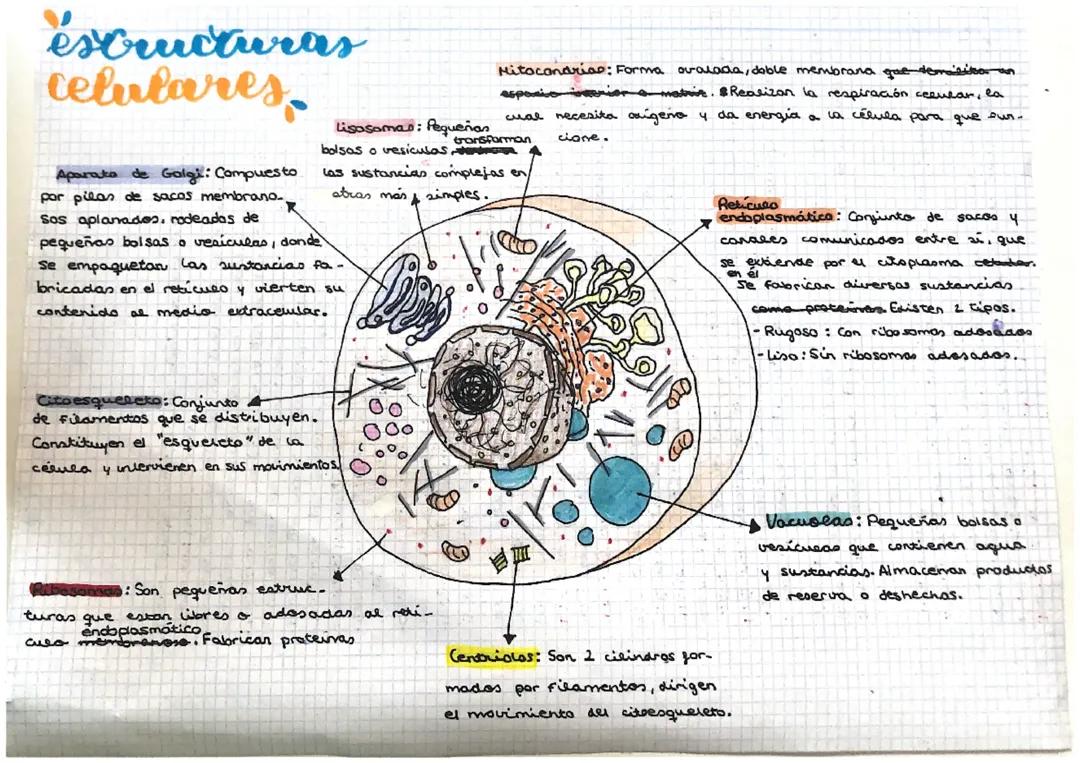 estructuras
celulares
Mitocondrias: Forma ovalada, doble membrana que demilita un
espacio interior o matriz. Realizan la respiración celular, la
cual necesita oxígeno y da energía a la célula para que fun-
cione.
Lisosomas: Pequeñas
bolsas o vesículas, transforman
las sustancias complejas en
otras más simples.
Aparato de Golgi: Compuesto
por pilas de sacos membrano-
sos aplanados, rodeados de
pequeñas bolsas o vesículas, donde
se empaquetan las sustancias fa-
bricadas en el retículo y vierten su
contenido al medio extracelular.
Retículo
endoplasmático: Conjunto de sacos y
canales comunicados entre sí, que
se extiende por el citoplasma celular.
en él
Se fabrican diversas sustancias
como proteínas Existen 2 tipos.
- Rugoso: Con ribosomas adosados
- Liso: Sin ribosomas adosados.
Citoesqueleto: Conjunto
de filamentos que se distribuyen.
Constituyen el "esqueleto" de la
célula y intervienen en sus movimientos.
Vacuolas: Pequeñas bolsas o
vesículas que contienen agua
y sustancias. Almacenan productos
de reserva o deshechos.
Ribosomas: Son pequeñas estruc-
turas que estan libres o adosadas al retí-
culo endoplasmático membranoso. Fabrican proteínas
Centriolos: Son 2 cilindros for-
mados por filamentos, dirigen
el movimiento del citoesqueleto.